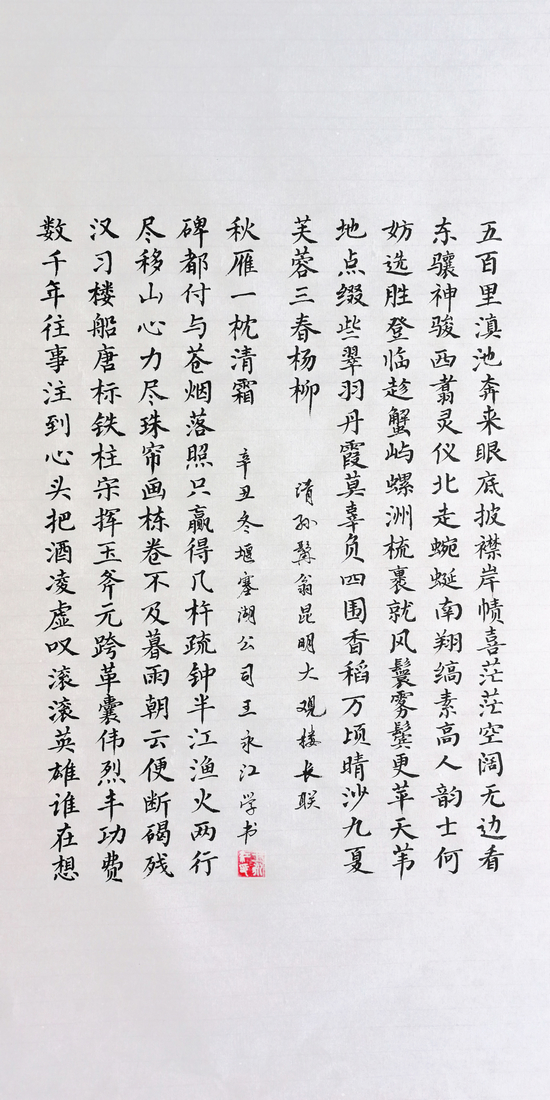 五百里滇池奔来眼底披襟岸帻喜茫茫空阔无边看
东骧神骏西翥灵仪北走蜿蜒南翔缟素高人韵士何
妨选胜登临趁蟹屿螺洲梳裹就风鬟雾鬓更苹天苇
地点缀些翠羽丹霞莫辜负四围香稻万顷晴沙九夏
芙蓉三春杨柳
数千年往事注到心头把酒凌虚叹滚滚英雄谁在想
汉习楼船唐标铁柱宋挥玉斧元跨革囊伟烈丰功费
尽移山心力尽珠帘画栋卷不及暮雨朝云便断碣残
碑都付与苍烟落照只赢得几杵疏钟半江渔火两行
秋雁一枕清霜
清孙髯翁昆明大观楼长联
辛丑冬堰塞湖公司王永江学书